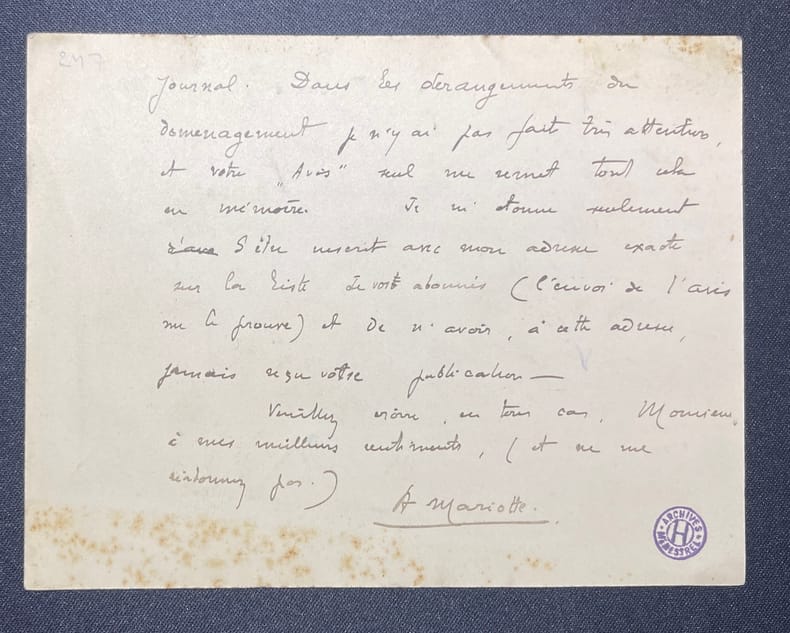 247
journal. Dans les dérangements du
déménagement je n'y ai pas fait très attention,
et votre "Avis" seul me remet tout cela
en mémoire. Je m'étonne seulement
d'être inscrit avec mon adresse exacte
sur la liste de vos abonnés (l'envoi de l'avis
me le prouve) et de n'avoir, à cette adresse,
jamais reçu votre publication —
Veuillez croire, en tous cas, Monsieur,
à mes meilleurs sentiments, (et ne me
réabonnez pas.)
A Mariotte.
ARCHIVES MENESTREL
H